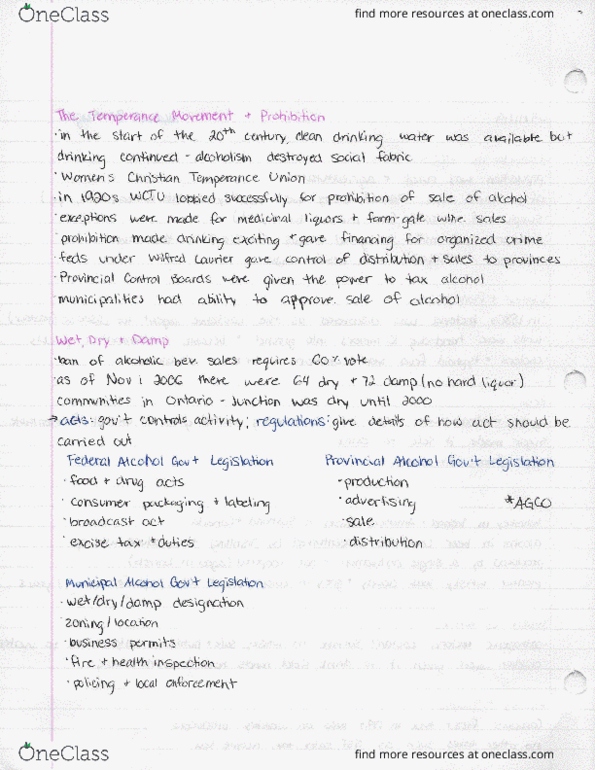 OneClass
find more resources at oneclass.com
The Temperance Movement + Prohibition
·in the start of the 20th century, clean drinking water was available but
drinking continued - alcoholism destroyed social fabric
·Women's Christian Temperance Union
·in 1920s WCTU lobbied successfully for prohibition of sale of alcohol
·exceptions were made for medicinal liquors + farm-gate wine sales
·prohibition made drinking exciting + gave financing for organized crime
·feds under Wilfred Laurier gave control of distribution + sales to provinces
·Provincial Control Boards were given the power to tax alcohol
·municipalities had ability to approve sale of alcohol
Wet, Dry + Damp
·ban of alcoholic bev. sales requires 60% vote
·as of Nov 1 2006 there were 64 dry + 72 damp (no hard liquor)
communities in Ontario - Junction was dry until 2000
→ acts: gov't controls activity; regulations: give details of how act should be
carried out
Federal Alcohol Gov't Legislation
·food + drug acts
·consumer packaging + labeling
·broadcast act
·excise tax + duties
Provincial Alcohol Gov't Legislation
·production
·advertising *AGCO
·sale
·distribution
Municipal Alcohol Gov't Legislation
·wet/dry/damp designation
·zoning/location
·business permits
·fire + health inspection
·policing + local enforcement
OneClass
find more resources at oneclass.com